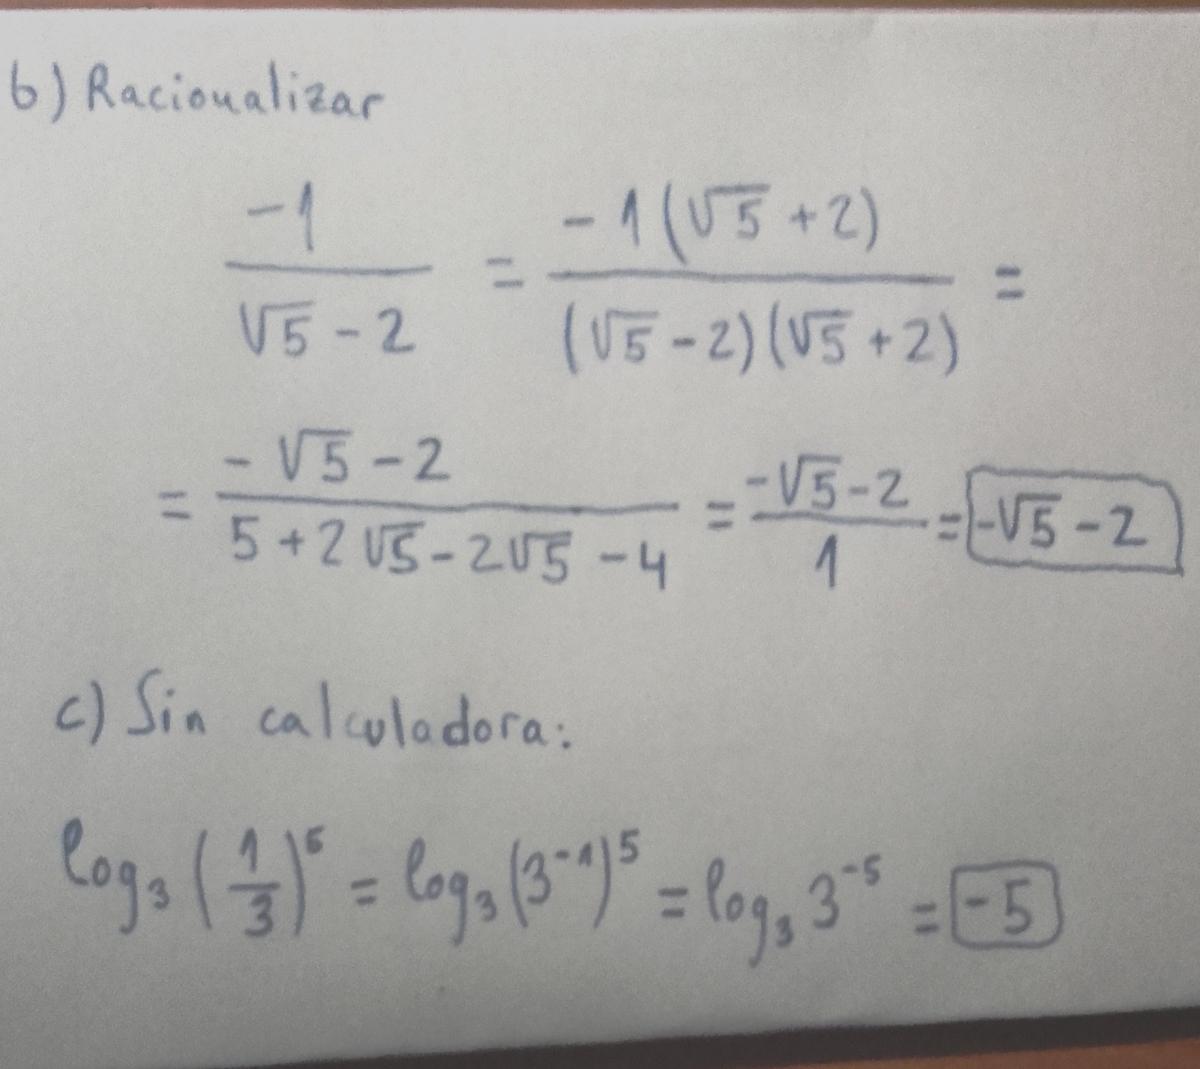 b) Racionalizar
-1/(√5 - 2) = -1(√5 + 2)/((√5 - 2)(√5 + 2)) =
= (-√5 - 2)/(5 + 2√5 - 2√5 - 4) = (-√5 - 2)/1 = -√5 - 2
c) Sin calculadora:
log₃(1/3)⁵ = log₃(3⁻¹)⁵ = log₃ 3⁻⁵ = -5